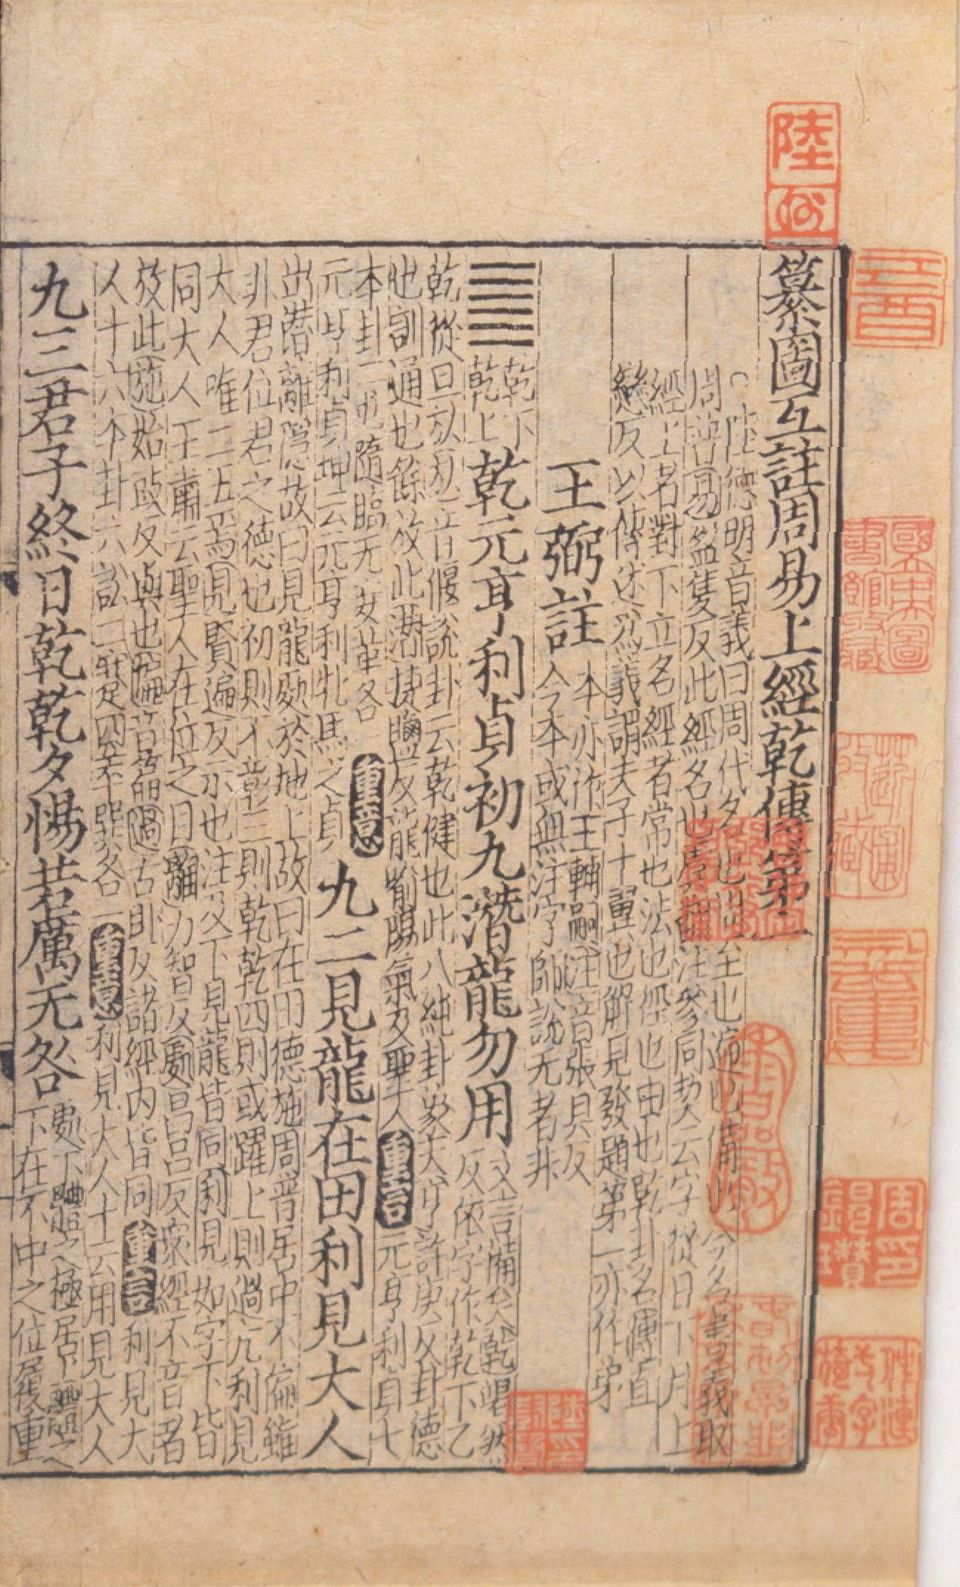 纂圖互註周易上經乾傳第一
陸德明音義曰周代名也周至也遍也備也今名書義取
周普易盈隻反此經名也虞翻注參同契云字從日下月上
經上者對下立名經者常也法也徑也由也乾卦名傳直
戀反以傳述爲義謂夫子十翼也解見發題第一亦作弟
王弼註 本亦作王輔嗣注音張具反
今本或無注字師說无者非
乾下
乾上
乾元亨利貞初九潛龍勿用 文言備矣乾竭然
反依字作乾下乙
乾從旦㫃㫃音偃說卦云乾健也此八純卦象天亨許庚反卦德
也訓通也餘放此潛捷鹽反龍喻陽氣及聖人 重言 元亨利貞七
本卦二屯隨臨无妄革各
元亨利貞坤云元亨利牝馬之貞 重意 九二見龍在田利見大人
出潛離隱故曰見龍處於地上故曰在田德施周普居中不偏雖
非君位君之德也初則不彰三則乾乾四則或躍上則過亢利見
大人唯二五焉見賢遍反示也注及下見龍皆同利見如字下皆
同大人王肅云聖人在位之目離力智反處昌呂反衆經不音者
放此施始豉反與也徧音遍過古卧反諸經內皆同 重言 利見大
人十六本卦六訟二蹇四萃巽各一 重意 利見大人十云用見大人
九三君子終日乾乾夕惕若厲无咎 處下體之極居上體之
下在不中之位履重
陸
周印錫瓚